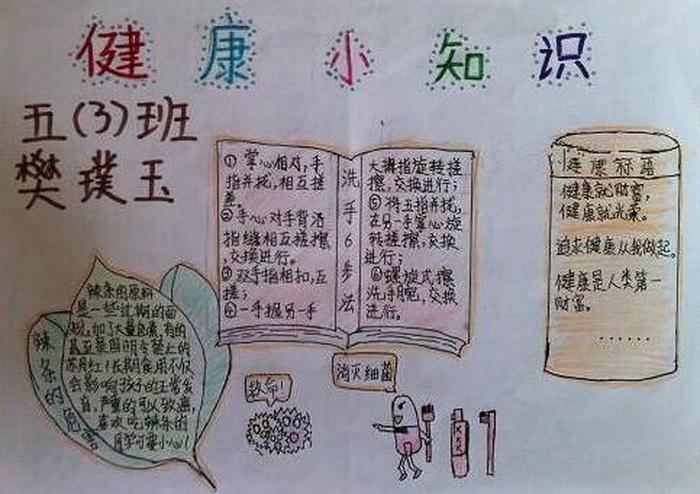 健康小知识
五(3)班
樊璞玉
洗手6步法
①掌心相对,手
指并拢,相互搓
②手心对手背沿
指缝相互搓擦
,交换进行。
③双手指相扣,互
搓;
④一手握另一手
大拇指旋转搓
擦,交换进行;
⑤将五指并拢,
在另一手掌心旋
转搓擦,交换
进行;
⑥螺旋式擦
洗手腕,交换
进行。
健康标语
健康就财富,
健康就光荣。
追求健康从我做起。
健康是人类第一
财富。
......
辣条的危害
辣条的原料
是一些过期的面
粉,加了大量色素,有的
甚至是国明令禁止的
苏丹红!长期食用不仅
会影响孩子的正常发
育,严重的可以致癌,
喜欢吃辣条的
同学可要小心!
救命!
消灭细菌